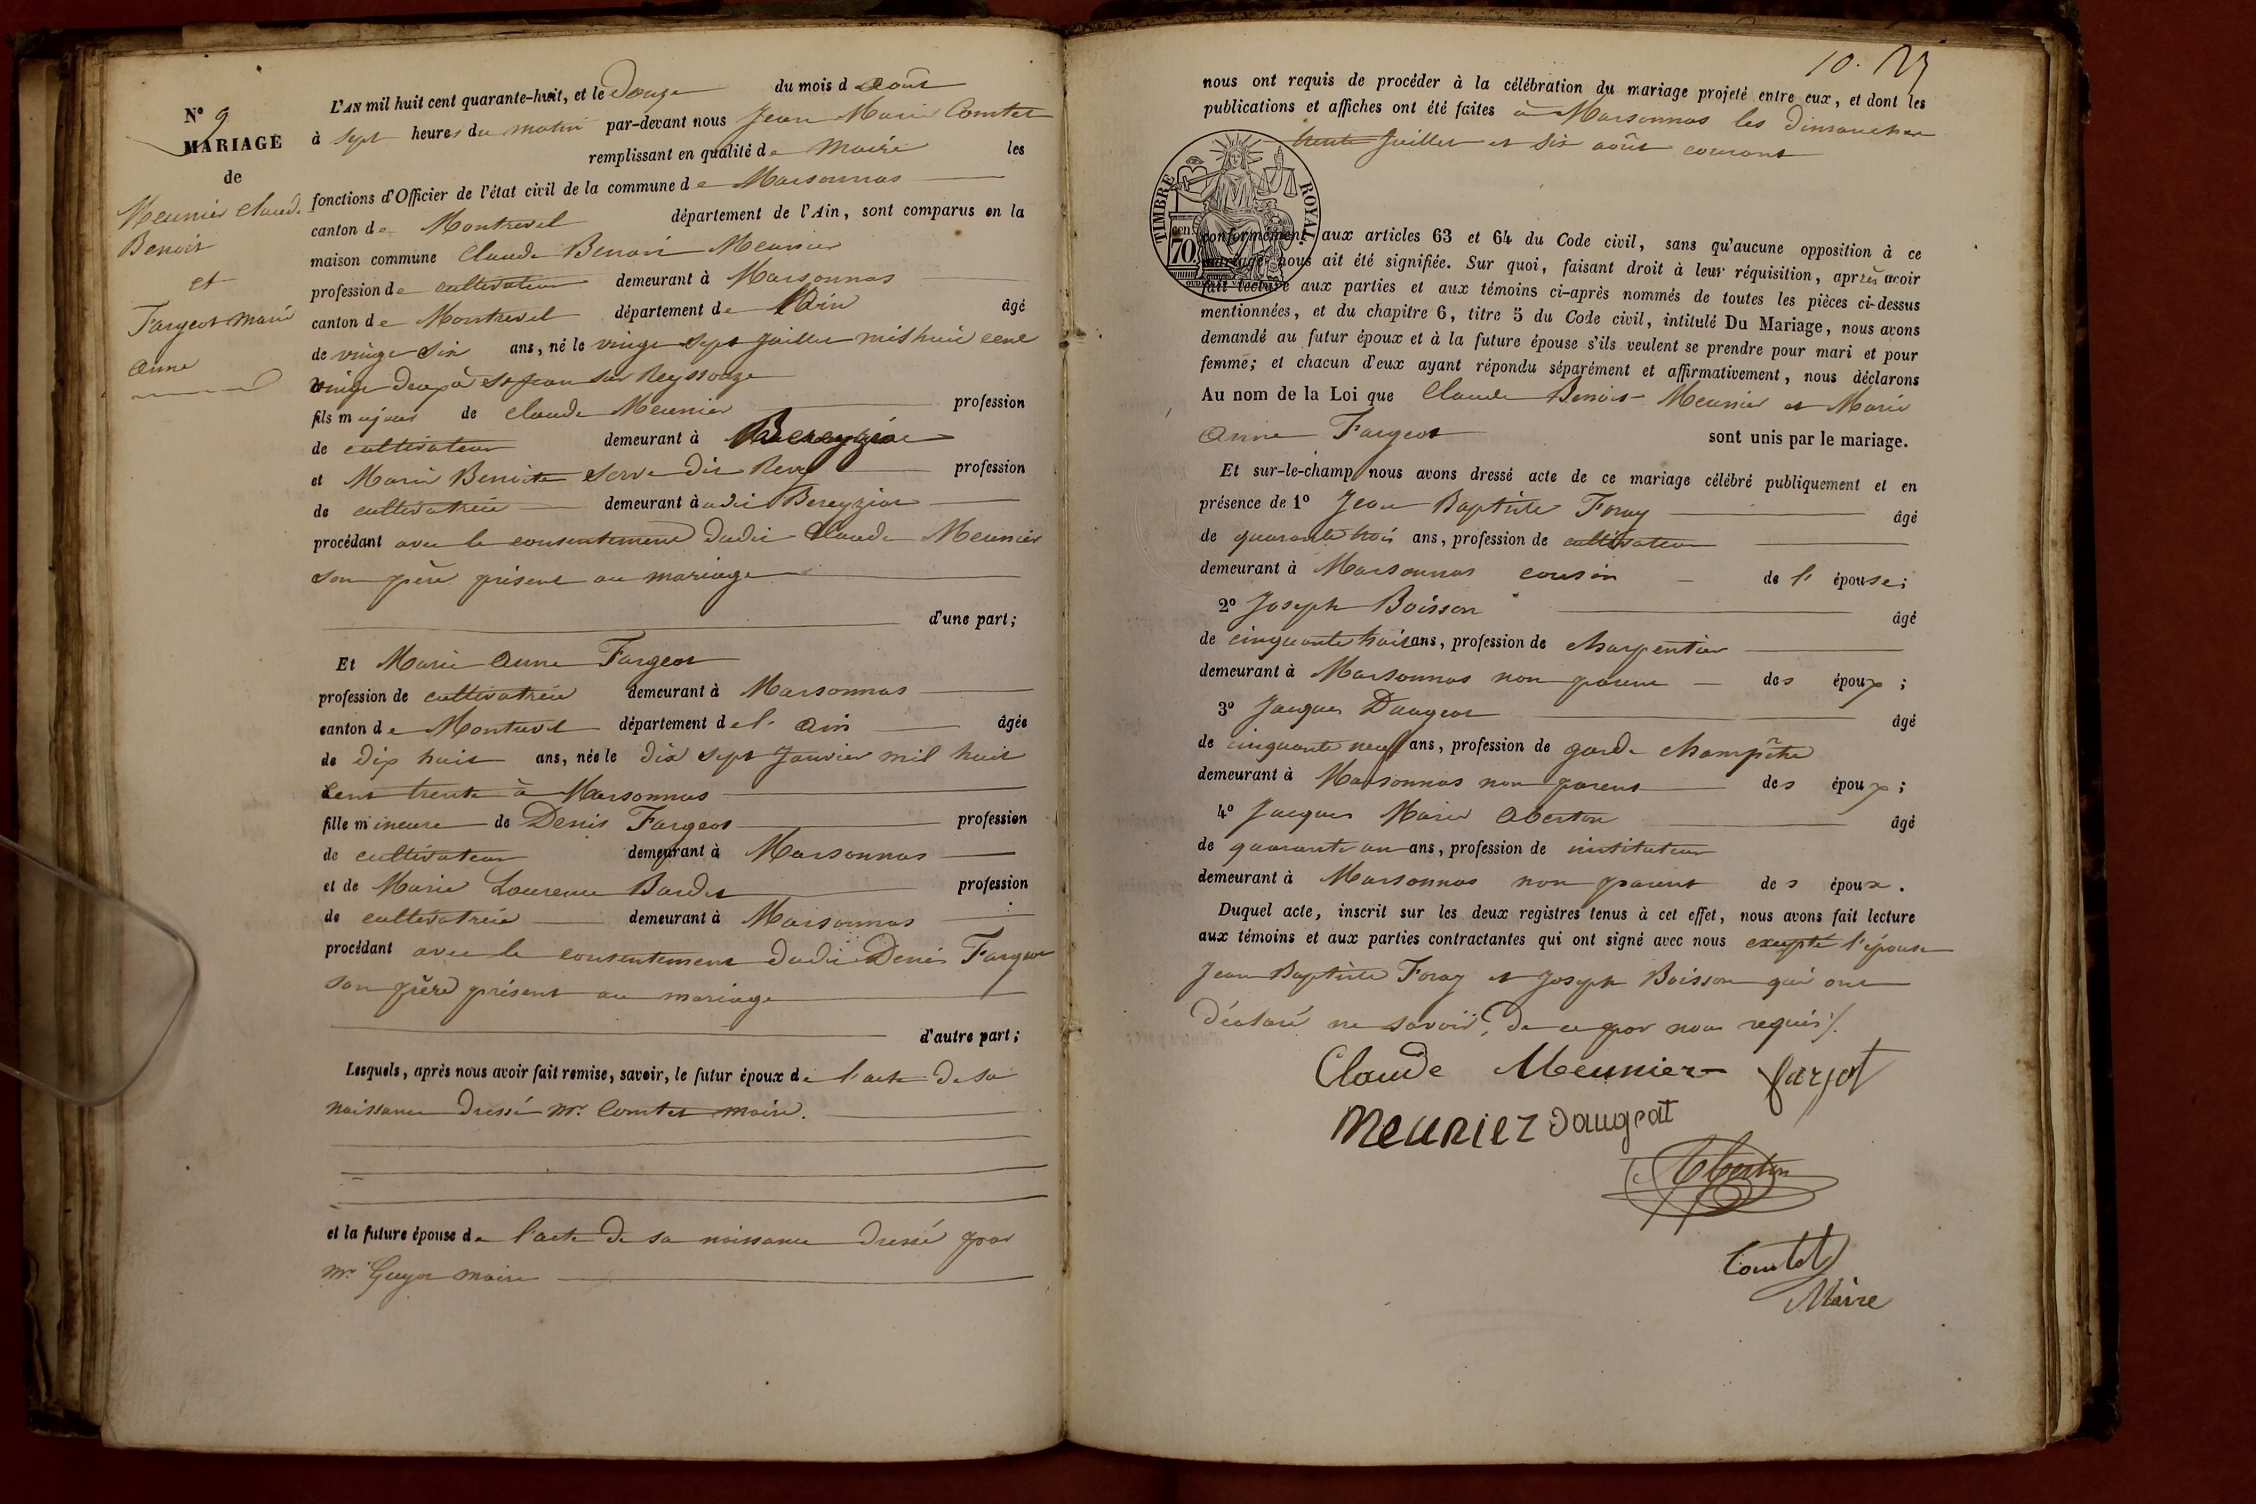 N° 9
MARIAGE
de
Meunier Claude
Benoit
et
Fargeot Marie
Anne
L'AN mil huit cent quarante-huit, et le Douze du mois d Août
à sept heures du matin par-devant nous Jean Marie Comtet
remplissant en qualité de Maire les
fonctions d'Officier de l'état civil de la commune de Marsonnas
canton de Montrevel département de l'Ain, sont comparus en la
maison commune Claude Benoit Meunier
profession de cultivateur demeurant à Marsonnas
canton de Montrevel département de l'Ain âgé
de vingt six ans, né le vingt sept Juillet mil huit cent
vingt deux à St Jean sur Reyssouze
fils majeur de Claude Meunier profession
de cultivateur demeurant à Bereyziat
et Marie Benoite Serve dit Revy profession
de cultivatrice demeurant à udit Bereyziat
procédant avec le consentement dudit Claude Meunier
son père présent au mariage
d'une part;
Et Marie Anne Fargeot
profession de cultivatrice demeurant à Marsonnas
canton de Montrevel département de l'Ain âgée
de dix huit ans, née le dix sept Janvier mil huit
cent trente à Marsonnas
fille mineure de Denis Fargeot profession
de cultivateur demeurant à Marsonnas
et de Marie Laurence Bardet profession
de cultivatrice demeurant à Marsonnas
procédant avec le consentement dudit Denis Fargeot
son père présent au mariage
d'autre part;
Lesquels, après nous avoir fait remise, savoir, le futur époux de l'acte de sa
naissance dressé Mr Comtet maire.
et la future épouse de l'acte de sa naissance dressé par
Mr Guyot maire
10.
nous ont requis de procéder à la célébration du mariage projeté entre eux, et dont les
publications et affiches ont été faites à Marsonnas les dimanches
trente Juillet et six août courant
TIMBRE ROYAL
70 cen
conformément aux articles 63 et 64 du Code civil, sans qu'aucune opposition à ce
mariage nous ait été signifiée. Sur quoi, faisant droit à leur réquisition, après avoir
fait lecture aux parties et aux témoins ci-après nommés de toutes les pièces ci-dessus
mentionnées, et du chapitre 6, titre 5 du Code civil, intitulé Du Mariage, nous avons
demandé au futur époux et à la future épouse s'ils veulent se prendre pour mari et pour
femme; et chacun d'eux ayant répondu séparément et affirmativement, nous déclarons
Au nom de la Loi que Claude Benoit Meunier et Marie
Anne Fargeot sont unis par le mariage.
Et sur-le-champ nous avons dressé acte de ce mariage célébré publiquement et en
présence de 1° Jean Baptiste Foray âgé
de quarante trois ans, profession de cultivateur
demeurant à Marsonnas cousin de l'épouse;
2° Joseph Boisson âgé
de cinquante trois ans, profession de charpentier
demeurant à Marsonnas non parent des époux;
3° Jacques Daugeat âgé
de cinquante neuf ans, profession de garde champêtre
demeurant à Marsonnas non parent des époux;
4° Jacques Marie Aberton âgé
de quarante un ans, profession de instituteur
demeurant à Marsonnas non parent des époux.
Duquel acte, inscrit sur les deux registres tenus à cet effet, nous avons fait lecture
aux témoins et aux parties contractantes qui ont signé avec nous excepté l'épouse
Jean Baptiste Foray et Joseph Boisson qui ont
déclaré ne savoir, de ce par nous requis ⁒.
Claude Meunier farjot
Meunier Daugeat
Aberton
Comtet
Maire